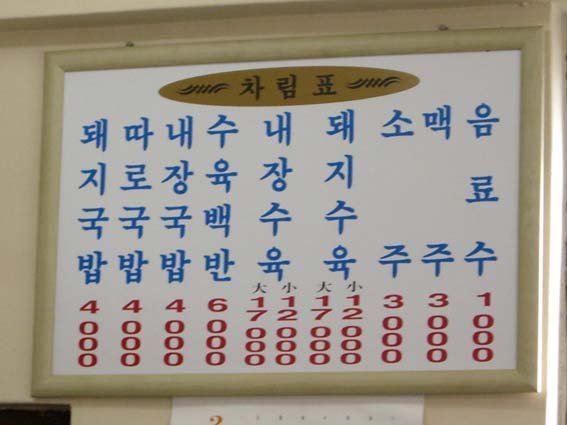 차림표
돼지국밥 4000
따로국밥 4000
내장국밥 4000
수육백반 6000
내장수육 大 17000 小 12000
돼지수육 大 17000 小 12000
소주 3000
맥주 3000
음료수 1000
2